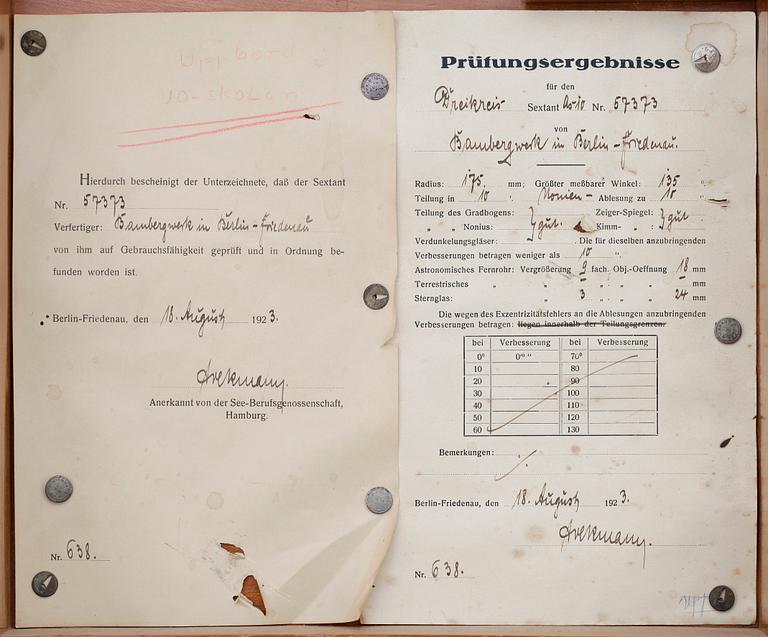 Hierdurch bescheinigt der Unterzeichnete, daß der Sextant
Nr. 57373
Verfertiger: Bambergwerk in Berlin-Friedenau
von ihm auf Gebrauchsfähigkeit geprüft und in Ordnung be-
funden worden ist.
Berlin-Friedenau, den 18. August 1923.
Anerkannt von der See-Berufsgenossenschaft,
Hamburg.
Nr. 638.
Prüfungsergebnisse
für den
Dreikreis- Sextant Nr. 57373
von
Bambergwerk in Berlin-Friedenau.
Radius: 175. mm; Größter meßbarer Winkel: 135 °
Teilung in 10 '. Nonien- Ablesung zu 10 "
Teilung des Gradbogens: } gut. Zeiger-Spiegel: } gut
„ „ Nonius: Kimm- „ :
Verdunkelungsgläser: Die für dieselben anzubringenden
Verbesserungen betragen weniger als 10 ".
Astronomisches Fernrohr: Vergrößerung 9 fach. Obj.-Oeffnung 18 mm
Terrestrisches „ „ – „ „ „ – mm
Sternglas: „ 3 „ „ „ 24 mm
Die wegen des Exzentrizitätsfehlers an die Ablesungen anzubringenden
Verbesserungen betragen: liegen innerhalb der Teilungsgrenzen.
bei Verbesserung bei Verbesserung
0° 0'0" 70°
10 80
20 90
30 100
40 110
50 120
60 130
Bemerkungen: ./.
Berlin-Friedenau, den 18. August 1923.
Nr. 638.